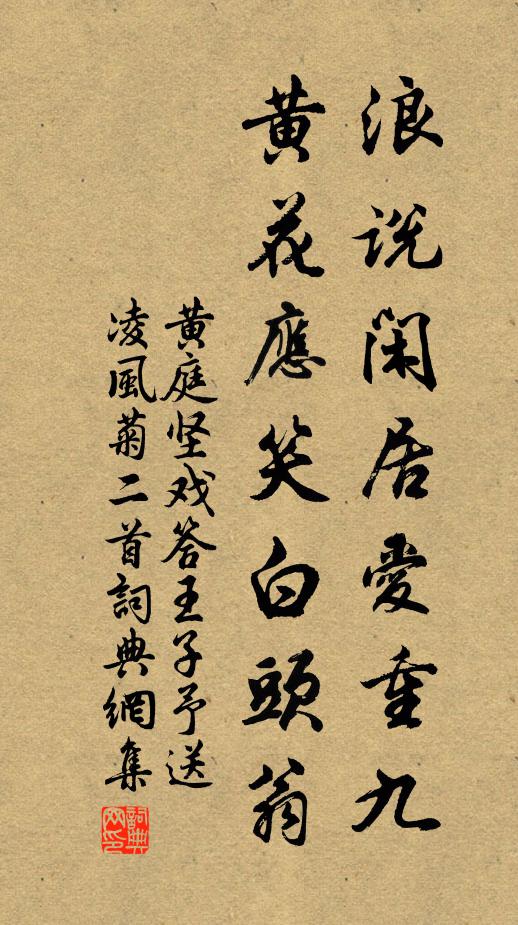 浪说闲居爱重九
黄花應笑白頭翁
黄庭坚戏答王子予送
凌風菊二首詞典網集
詞典网印